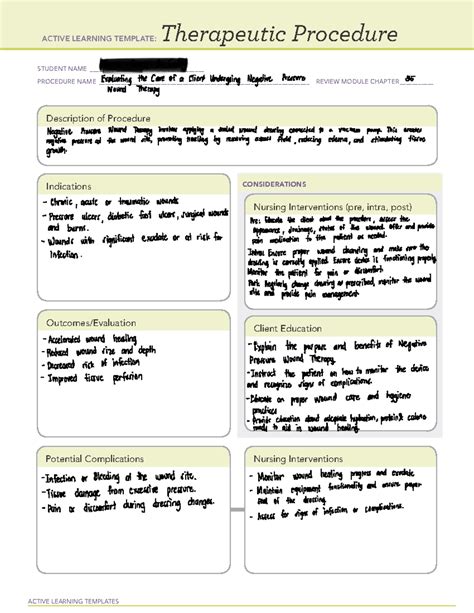 ACTIVE LEARNING TEMPLATE: Therapeutic Procedure
STUDENT NAME
PROCEDURE NAME Evaluating the Care of a Client Undergoing Negative Pressure REVIEW MODULE CHAPTER
Wound Therapy
Description of Procedure
Negative Pressure Wound Therapy involves applying a sealed wound dressing connected to a vacuum pump. This creates
negative pressure at the wound site, promoting healing by removing excess fluid, reducing edema, and stimulating tissue
growth.
Indications
- Chronic, acute or traumatic wounds
- Pressure ulcer, diabetic foot ulcer, surgical wounds
and burns.
- Wounds with significant exudate or at risk for
infection.
CONSIDERATIONS
Nursing Interventions (pre, intra, post)
Pre: Educate the client about the procedure, assess the
appearance, drainage, status of the wound and provide
pain medication to the patient as needed.
Intra: Ensure proper wound cleaning and make sure the
dressing is correctly applied. Ensure device is functioning properly.
Monitor the patient for pain or discomfort.
Post: Regularly change dressing or as prescribed, monitor the wound
site and provide pain management.
Outcomes/Evaluation
- Accelerated wound healing
- Reduced wound size and depth
- Decreased risk of infection
- Improved tissue perfusion
Client Education
- Explain the purpose and benefits of Negative
Pressure Wound Therapy.
- Instruct the patient on how to monitor the device
and recognize signs of complications.
- Educate on proper wound care and hygiene
practices
- Provide education about adequate hydration, protein & calorie
to aid in wound healing.
Potential Complications
- Infection or Bleeding at the wound site.
- Tissue damage from excessive pressure.
- Pain or discomfort during dressing changes.
Nursing Interventions
- Monitor wound healing progress and exudate
- Maintain equipment functionality and ensure proper
seal of the dressing.
- Assess for signs of infection or complications
ACTIVE LEARNING TEMPLATES